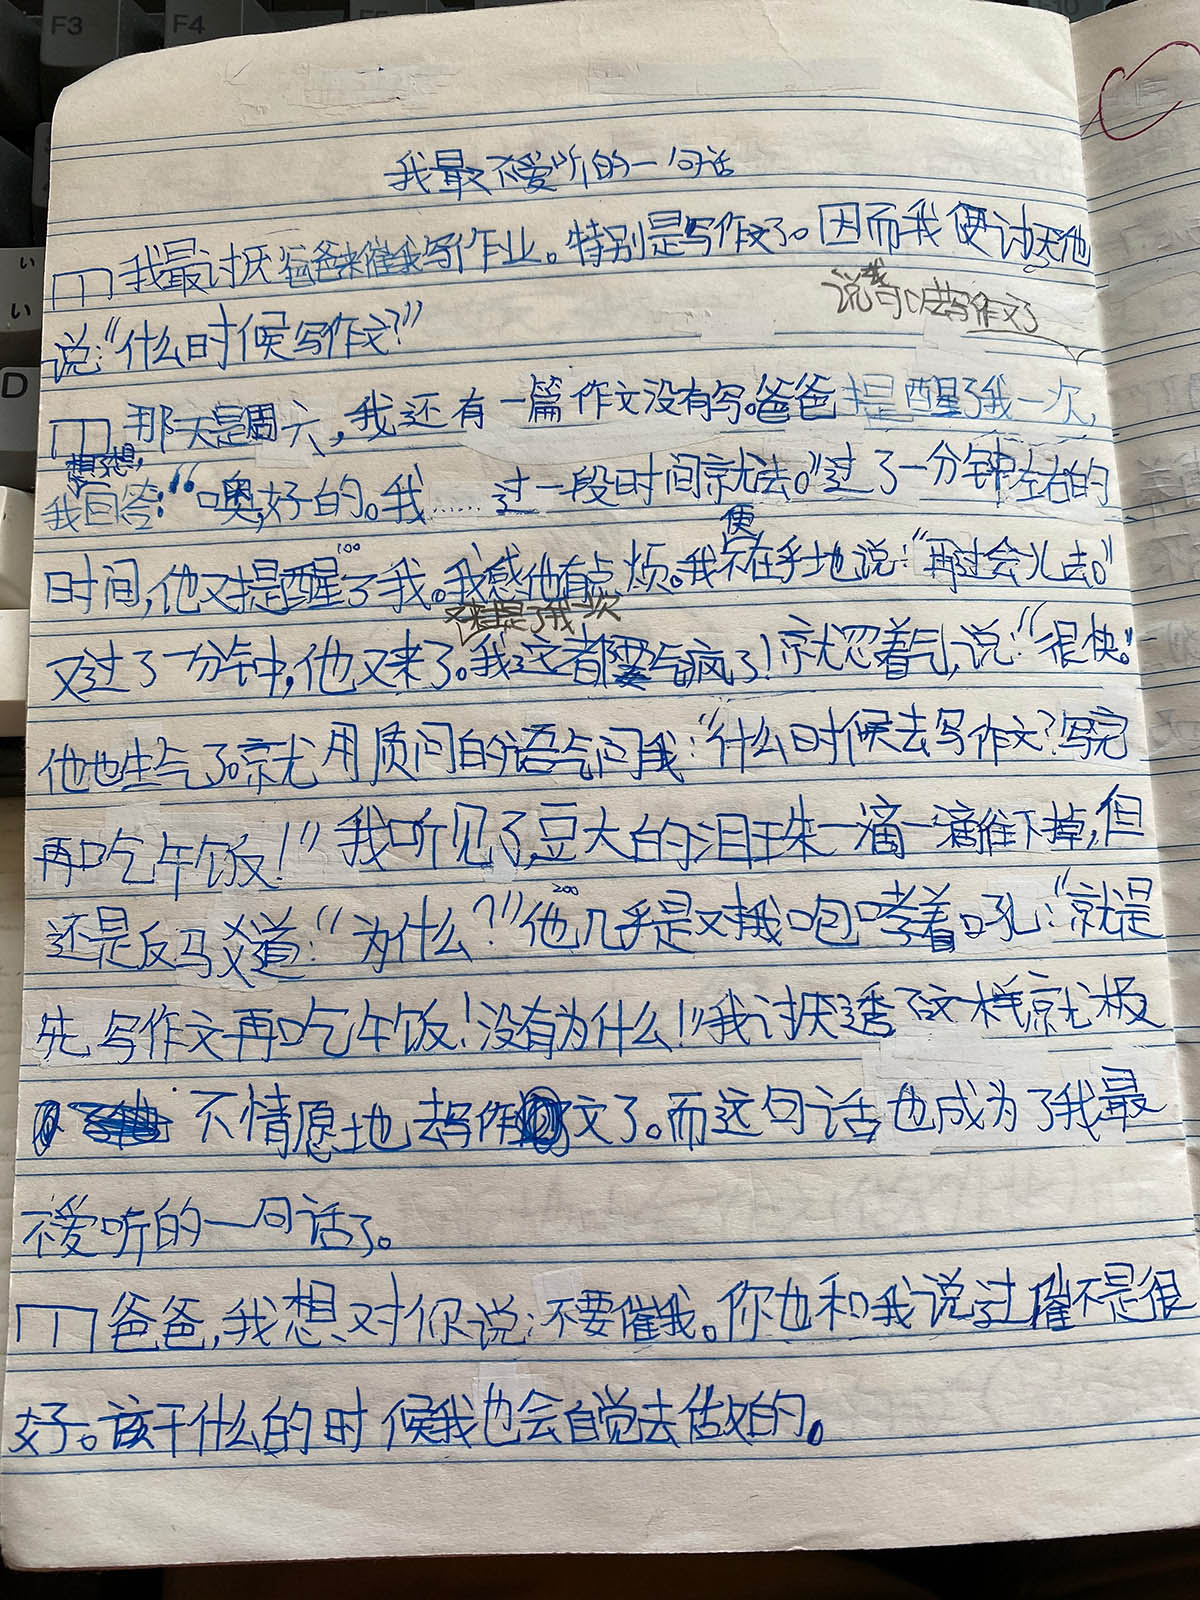 我最不爱听的一句话
我最讨厌爸爸来催我写作业。特别是写作文了。因而我便讨厌他
说可以去写作文了
说:“什么时候写作文?”
那天是周六,我还有一篇作文没有写。爸爸提醒了我一次,
想了想,
我回答:“噢,好的。我……过一段时间就去。”过了一分钟左右的
便
时间,他又提醒了我。我感他有点烦。我不在乎地说:“再过会儿去。”
100
又来提了我一次
又过了一分钟,他又来了。我这都要气疯了!就忍着气,说:“很快。”
他也生气了。就用质问的语气问我:“什么时候去写作文?写完
再吃午饭!”我听见了,豆大的泪珠一滴一滴往下掉,但
还是反驳道:“为什么?”他几乎是对我咆哮着吼:“就是
200
先写作文再吃午饭!没有为什么!”我讨厌透了这样就极
不情愿地去写作文了。而这句话也成为了我最
不爱听的一句话了。
爸爸,我想对你说:不要催我。你也和我说过催不是很
好。该干什么的时候我也会自觉去做的。
F3
F4
D